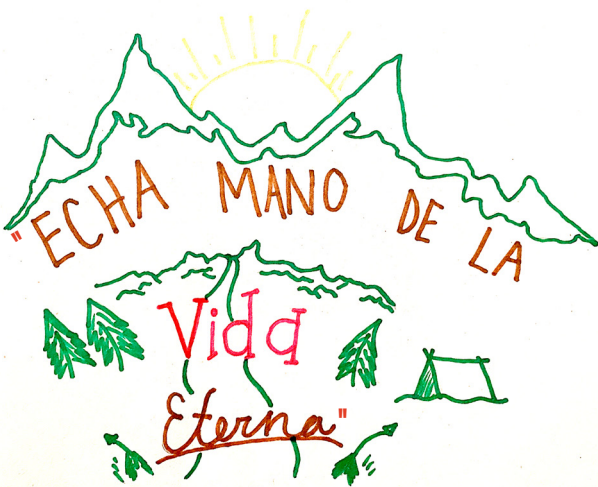 "ECHA MANO DE LA
Vida
Eterna"